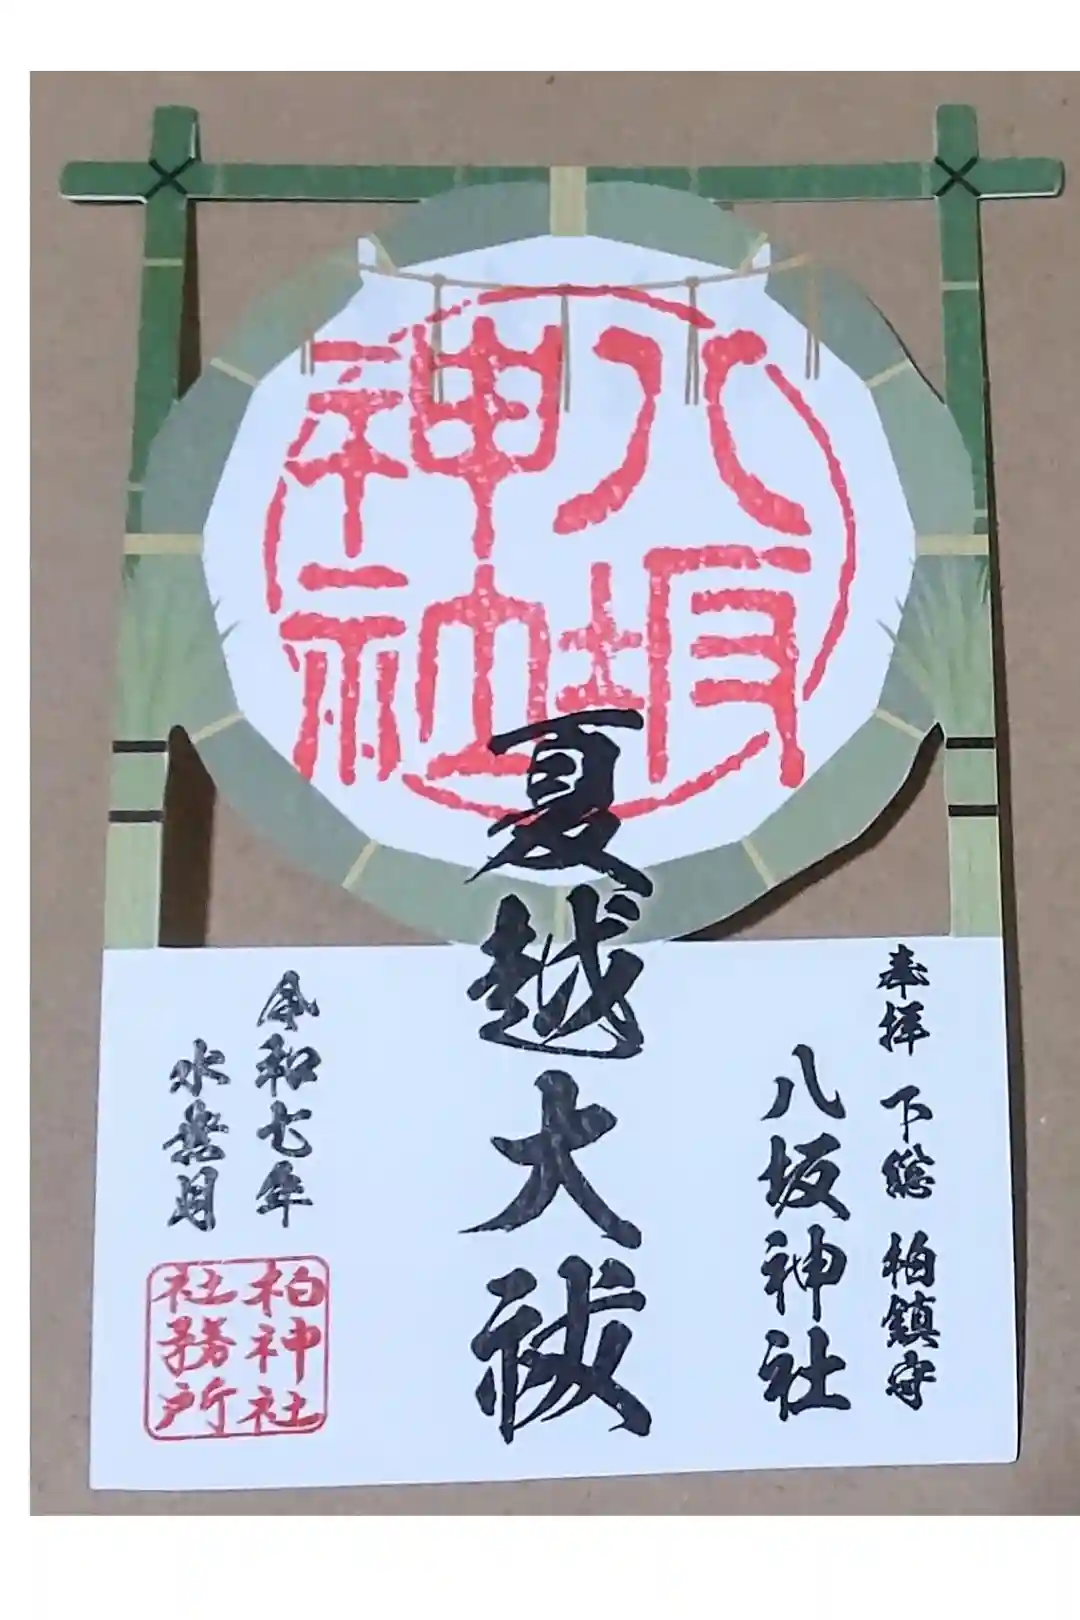 八坂
神社
奉拝 下総 柏鎮守
八坂神社
夏越大祓
令和七年
水無月
柏神社
社務所